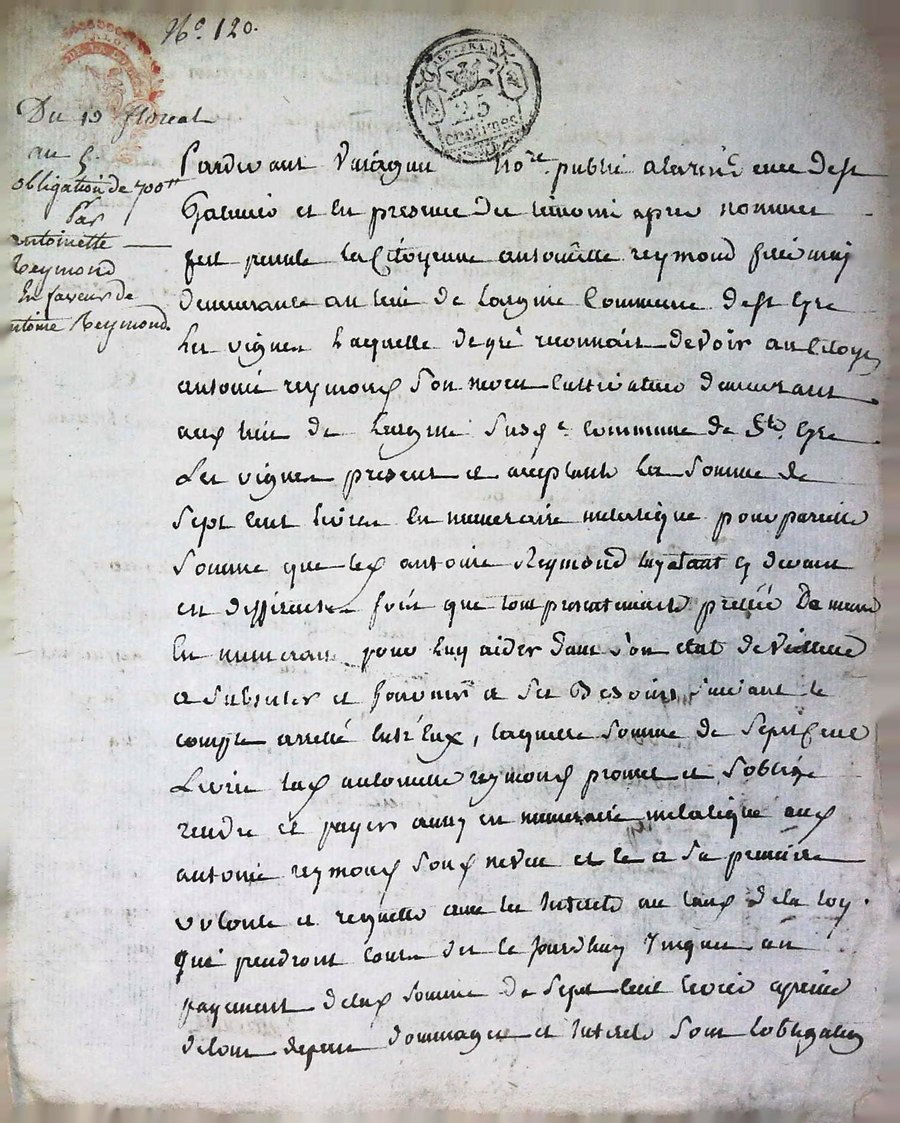 N.o 120.
REP. FRA.
25
centimes
Du 19 floreal
an 5
obligation de 700tt
Par
antoinette
Reymond
En faveur de
antoine Reymond.
Pardevant not.re public a la residence de st
Galmier et en presence des temoins apres nommes
fut presente la Citoyenne antoinette reymond fille maj
demeurante au lieu de Commune de st Cyre
Les vignes Laquelle de gré reconnait devoir au Citoyen
antoine reymond Son neveu Cultivateur demeurant
aux lieu de susd.e Commune de St. Cyre
Les vignes present et acceptant la Somme de
Sept Cent Livres En numeraire metalique pour pareille
Somme que led antoine Reymond
en differentes fois que tout presentement
En numeraire pour luy aider dans son etat de vieillesse
a Subsister et fournir a Ses Besoins, Suivant le
compte arreté Entr'Eux, laquelle Somme de Sept Cent
Livres lad antoinette reymond promet et S'oblige
rendre et payer aussy en numeraire metalique aud
antoine reymond Sond neveu et ce a Sa premiere
volonté et requette avec les Interets au taux de la loy.
Qui prendront cours des ce Jourdhuy Jusques au
payement de lad somme de Sept Cent Livres a peine
de tous depens dommages et Interets Sous l'obligation